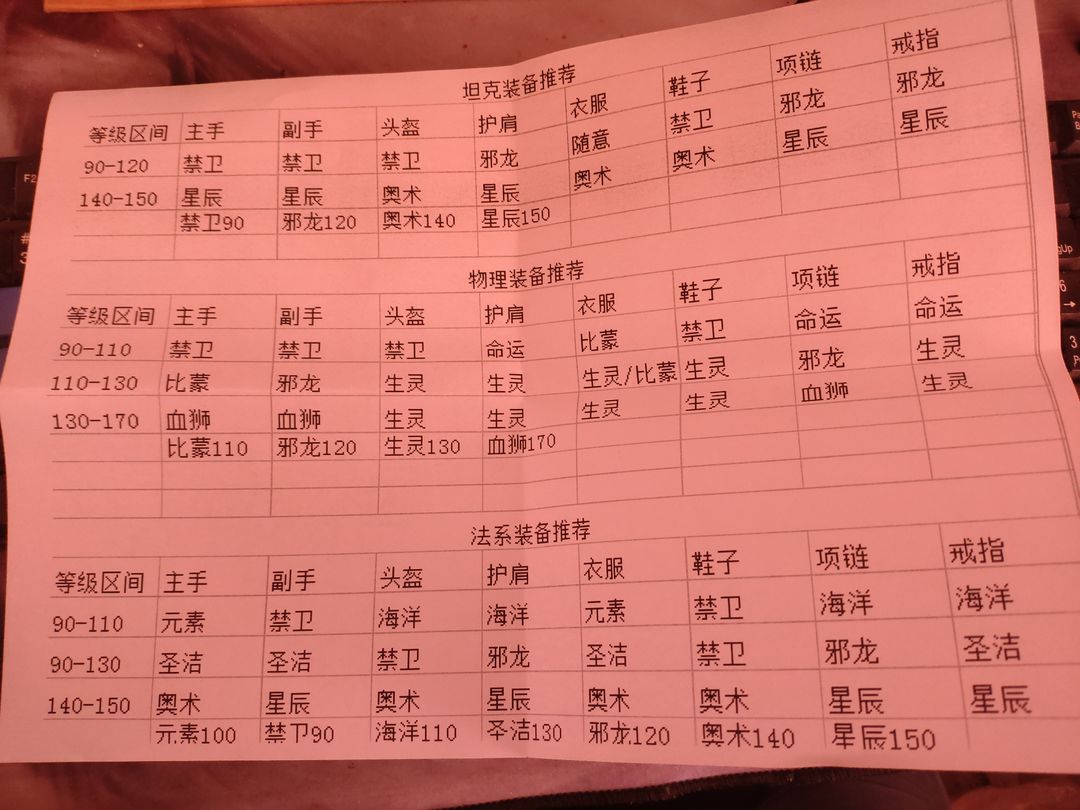 坦克装备推荐
等级区间 主手 副手 头盔 护肩 衣服 鞋子 项链 戒指
90-120 禁卫 禁卫 禁卫 邪龙 随意 禁卫 邪龙 邪龙
140-150 星辰 星辰 奥术 星辰 奥术 奥术 星辰 星辰
禁卫90 邪龙120 奥术140 星辰150
物理装备推荐
等级区间 主手 副手 头盔 护肩 衣服 鞋子 项链 戒指
90-110 禁卫 禁卫 禁卫 命运 比蒙 禁卫 命运 命运
110-130 比蒙 邪龙 生灵 生灵 生灵/比蒙 生灵 邪龙 生灵
130-170 血狮 血狮 生灵 生灵 生灵 生灵 血狮 生灵
比蒙110 邪龙120 生灵130 血狮170
法系装备推荐
等级区间 主手 副手 头盔 护肩 衣服 鞋子 项链 戒指
90-110 元素 禁卫 海洋 海洋 元素 禁卫 海洋 海洋
90-130 圣洁 圣洁 禁卫 邪龙 圣洁 禁卫 邪龙 圣洁
140-150 奥术 星辰 奥术 星辰 奥术 奥术 星辰 星辰
元素100 禁卫90 海洋110 圣洁130 邪龙120 奥术140 星辰150